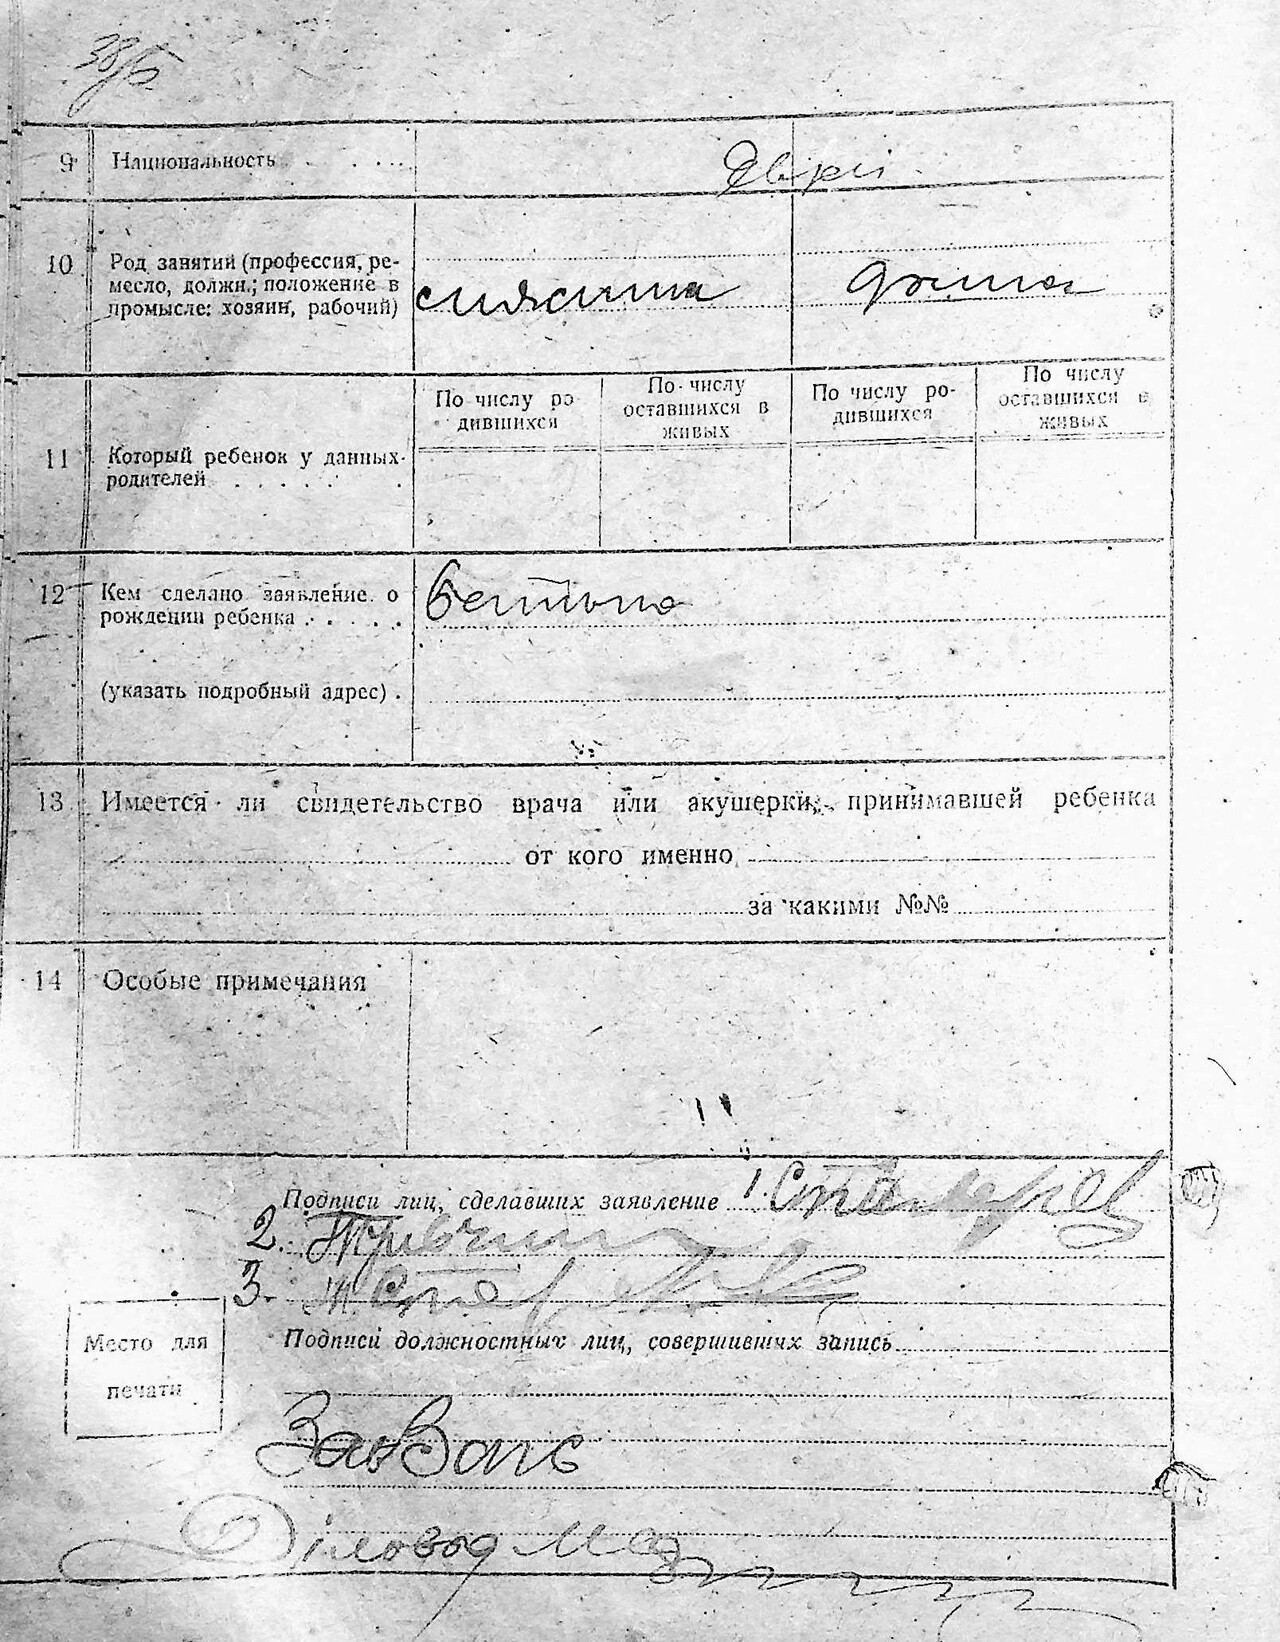 9 Национальность Євреї.
10 Род занятий (профессия, ре-
месло, должн.; положение в
промысле: хозяин, рабочий)
дома
По числу ро
дившихся
По числу
оставшихся в
живых
По числу ро-
дившихся
По числу
оставшихся в
живых
11 Который ребенок у данных
родителей
12 Кем сделано заявление о
рождении ребенка
батько
(указать подробный адрес)
13 Имеется ли свидетельство врача или акушерки, принимавшей ребенка
от кого именно
за какими №№
14 Особые примечания
Подписи лиц, сделавших заявление 1.
2.
3.
Место для
печати
Подписи должностных лиц, совершивших запись
ЗавЗагс
Діловод